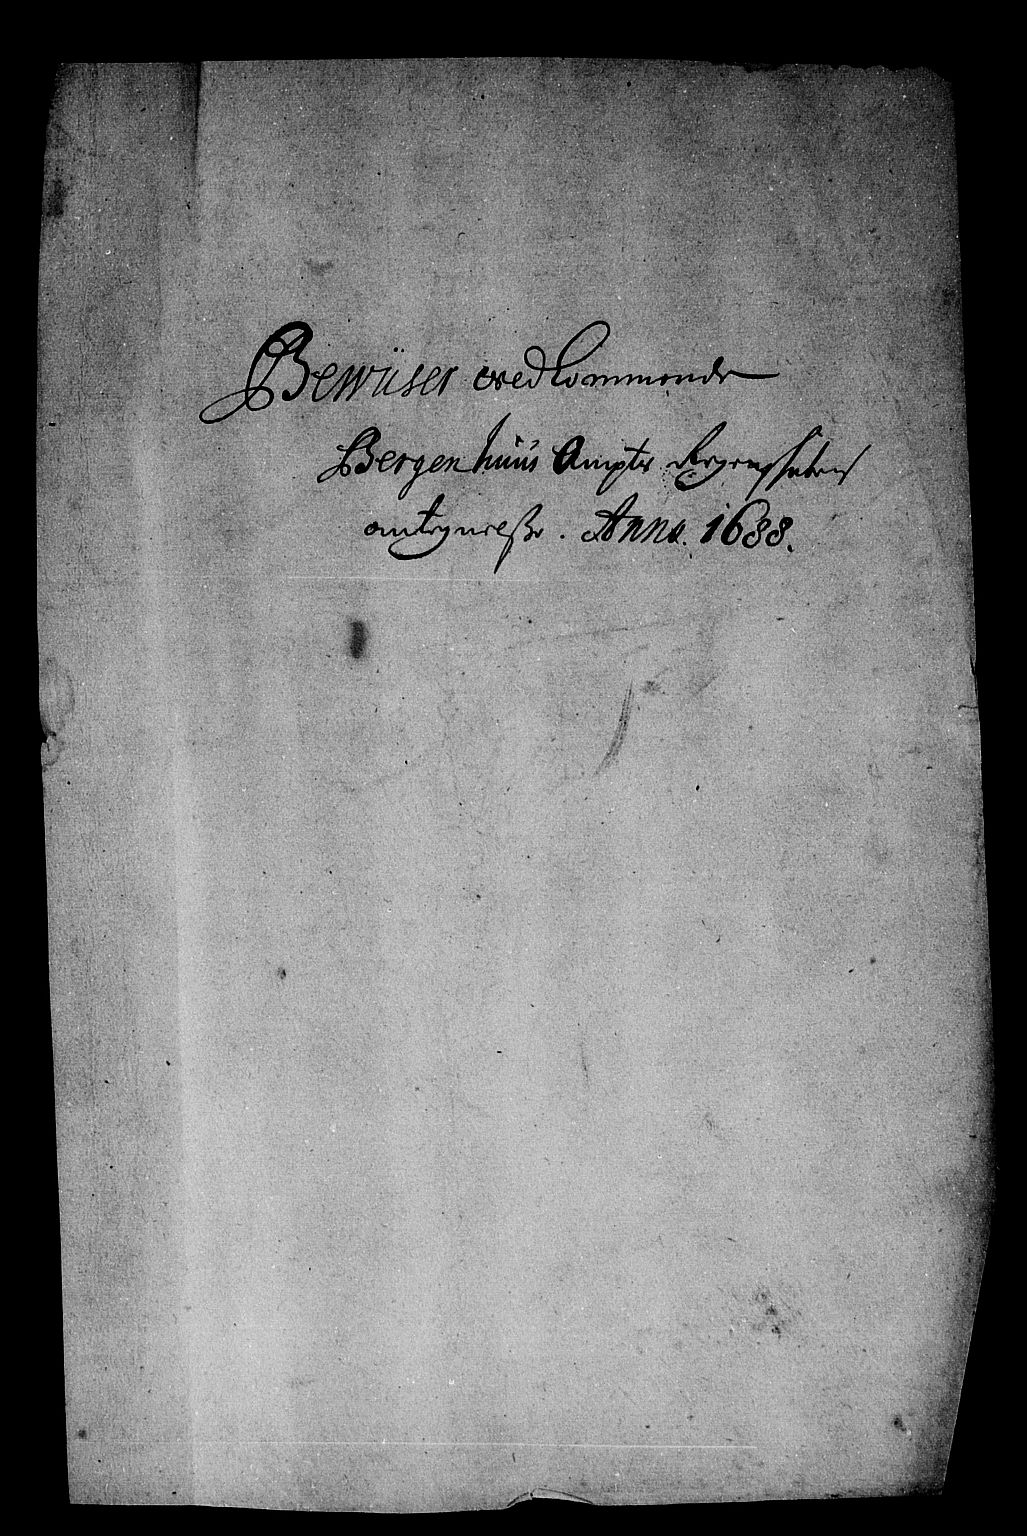 Bewüser vedkommende
Bergenhuus Ampts Regenskabers
antegnelße. Anno. 1688.